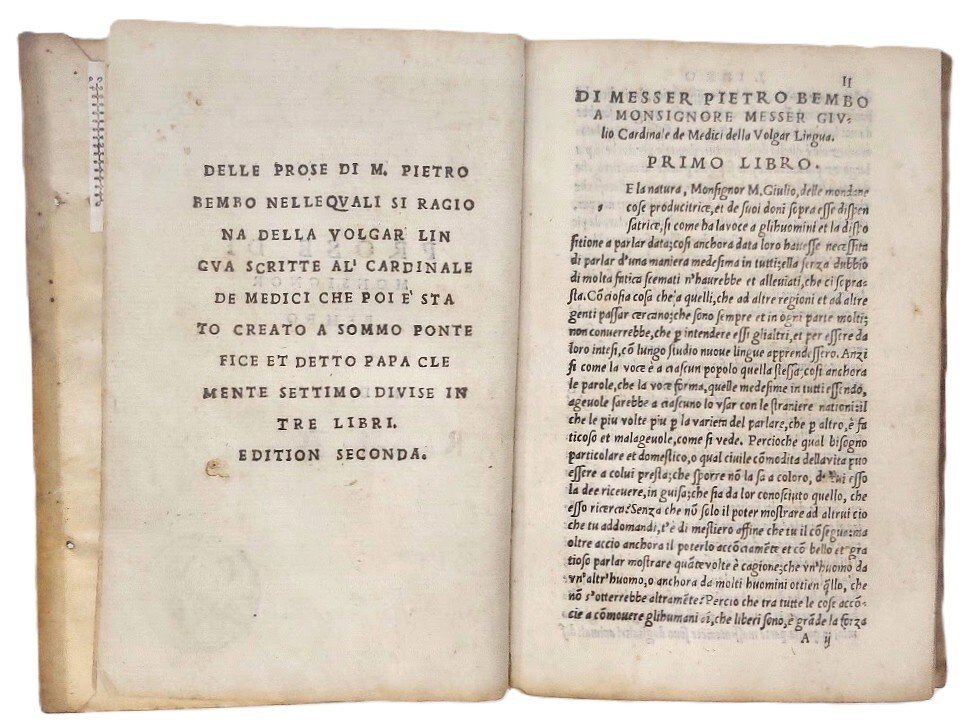 DELLE PROSE DI M. PIETRO
BEMBO NELLEQVALI SI RAGIO
NA DELLA VOLGAR LIN
GVA SCRITTE AL' CARDINALE
DE MEDICI CHE POI E' STA
TO CREATO A SOMMO PONTE
FICE ET DETTO PAPA CLE
MENTE SETTIMO DIVISE IN
TRE LIBRI.
EDITION SECONDA.
II
DI MESSER PIETRO BEMBO
A MONSIGNORE MESSER GIV-
lio Cardinale de Medici della Volgar Lingua.
PRIMO LIBRO.
E la natura, Monſignor M. Giulio, delle mondane
coſe producitrice, et de ſuoi doni ſopra eſſe diſpen
ſatrice, ſi come ha la voce a glihuomini et la diſpo
ſitione a parlar data; coſi anchora data loro haueſſe neceſſita
di parlar d'una maniera medeſima in tutti; ella ſenza dubbio
di molta fatica ſcemati n'haurebbe et alleuiati, che ci ſopra-
ſta. Cõ cioſia coſa che a quelli, che ad altre regioni et ad altre
genti paſſar cercano; che ſono ſempre et in ogni parte molti;
non conuerrebbe, che ꝑ intendere eſſi glialtri, et per eſſere da
loro inteſi, cõ lungo ſtudio nuoue lingue apprendeſſero. Anzi
ſi come la voce è a ciaſcun popolo quella ſteſſa; coſi anchora
le parole, che la voce forma, quelle medeſime in tutti eſſendo,
ageuole ſarebbe a ciaſcuno lo vſar con le ſtraniere nationi: il
che le piu volte piu ꝑ la varieta del parlare, che ꝑ altro, è fa
ticoſo et malageuole, come ſi vede. Percioche qual biſogno
particolare et domeſtico, o qual ciuile cõmodita della vita puo
eſſere a colui preſta; che ſporre nõ la ſa a coloro, da cui eſſo
la dee riceuere, in guiſa; che ſia da lor conoſciuto quello, che
eſſo ricerca? Senza che nõ ſolo il poter moſtrare ad altrui cio
che tu addomandi, t'è di meſtiero affine che tu il cõſegua: ma
oltre accio anchora il poterlo accõciamẽte et cõ bello et gra
tioſo parlar moſtrare quãte volte è cagione; che vn'huomo da
vn'altr'huomo, o anchora da molti huomini ottien q̃llo, che
nõ s'otterrebbe altramẽte? Percio che tra tutte le coſe accõ-
cie a cõmouere glihumani aĩ, che liberi ſono, è grãde la forza
A ij